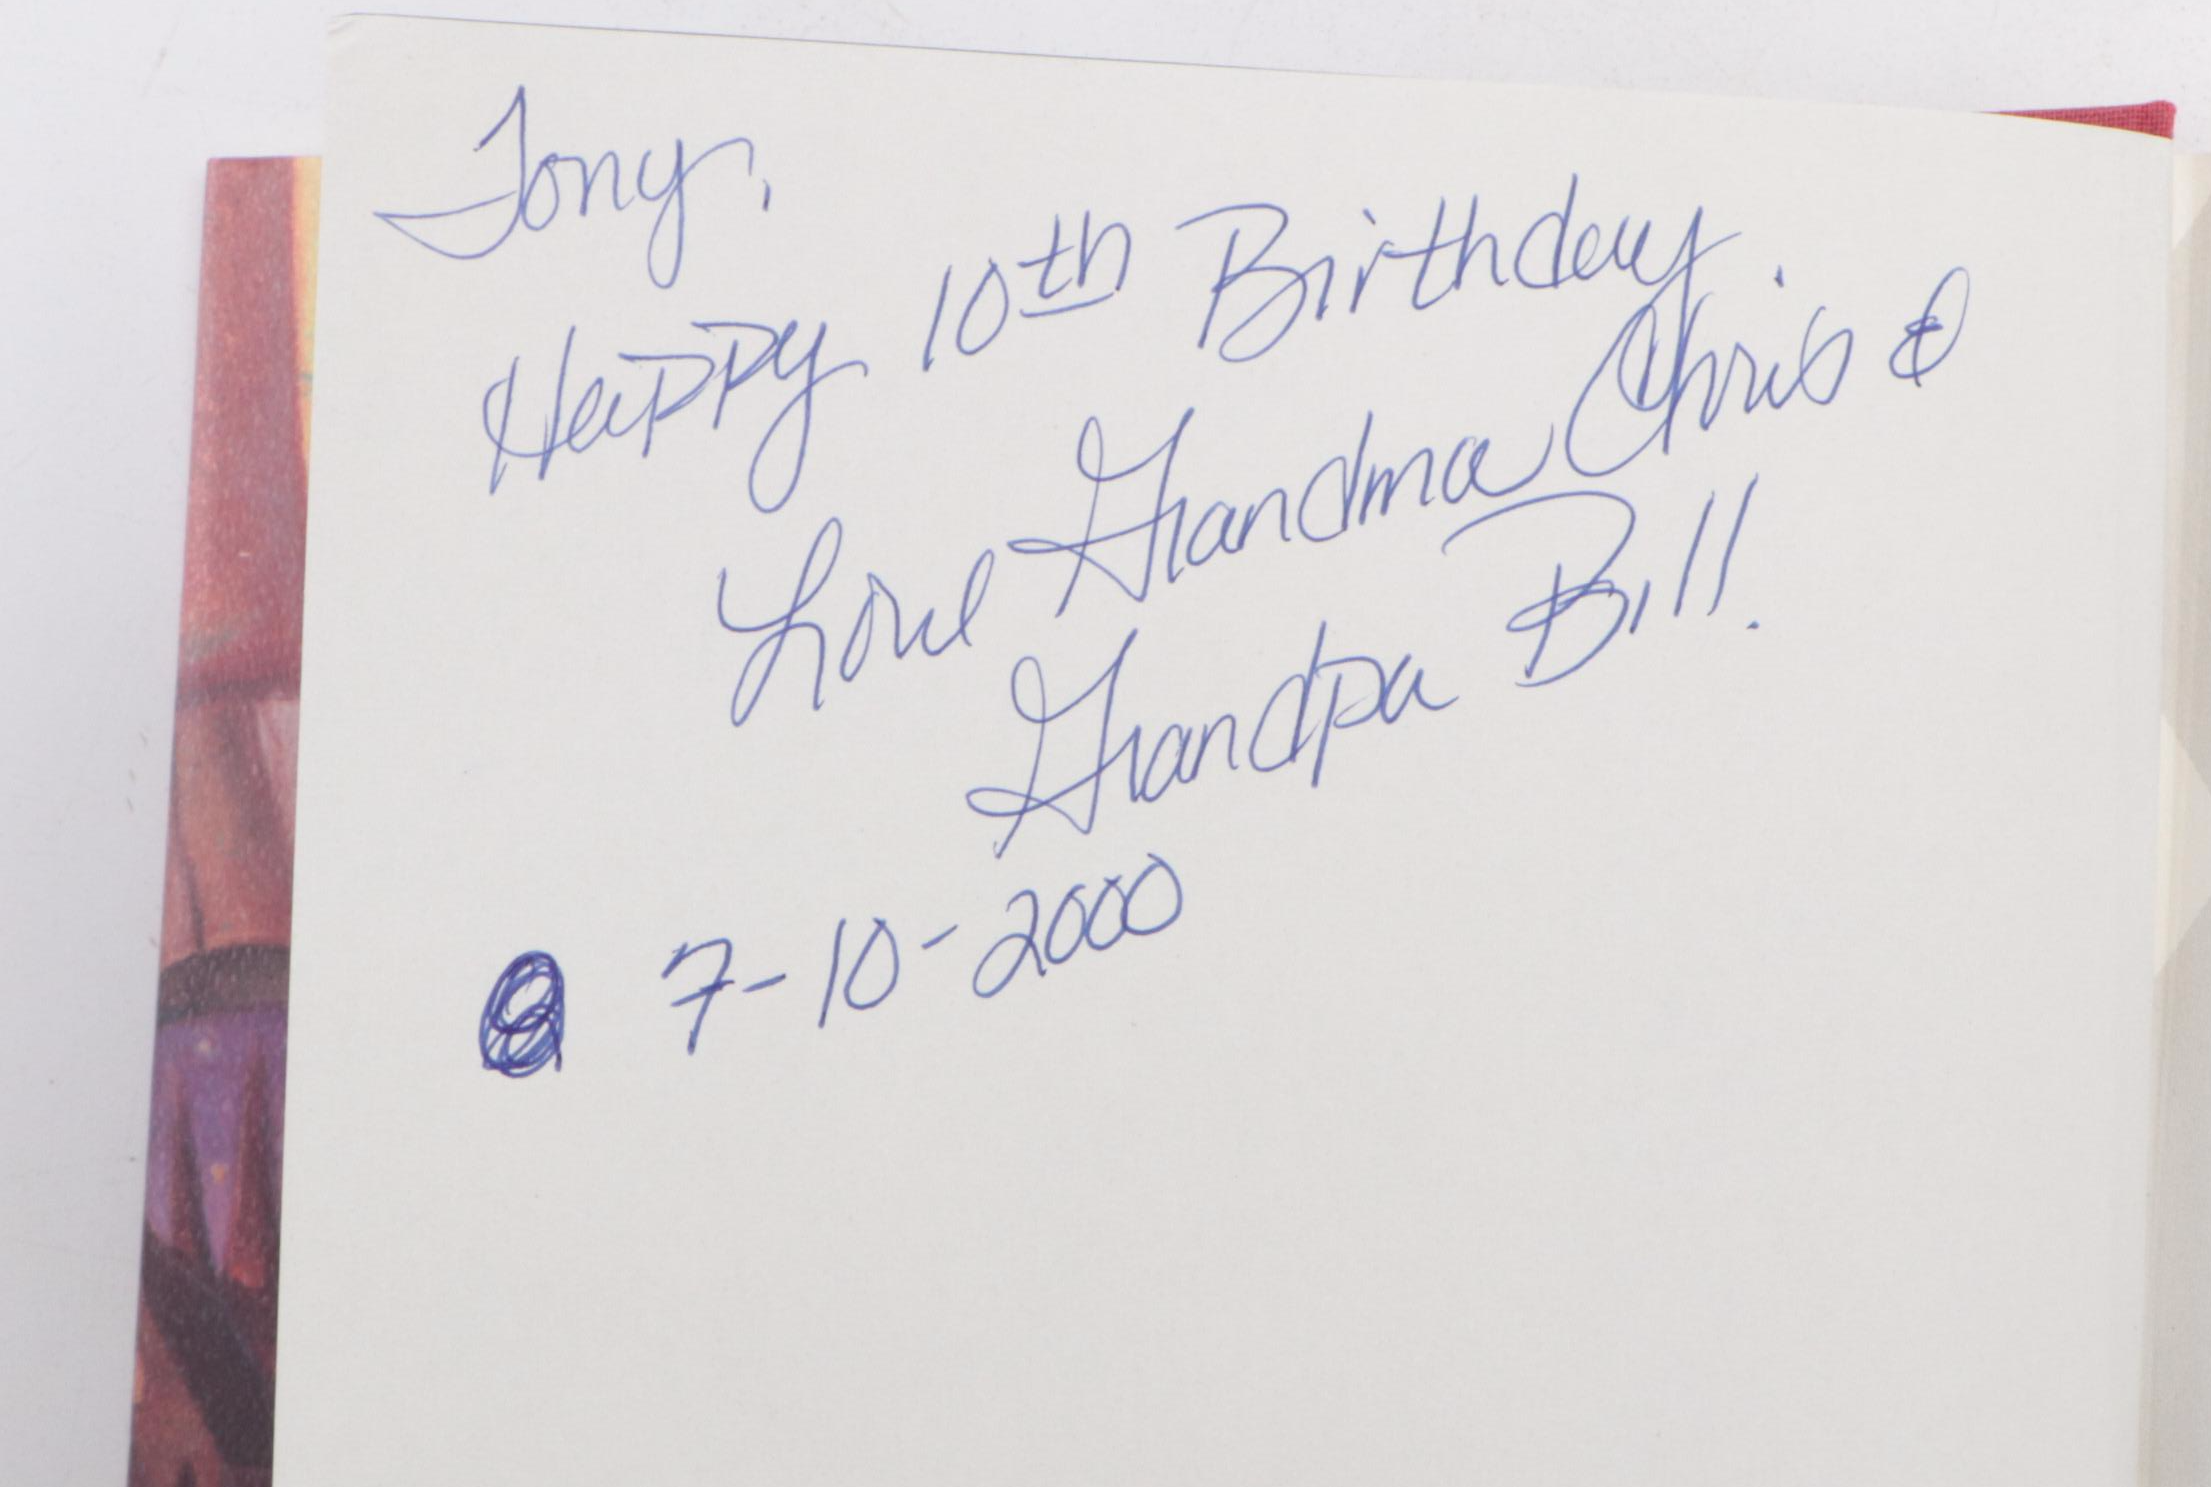 Tony,
Happy 10th Birthday.
Love Grandma Chris &
Grandpa Bill.
7-10-2000